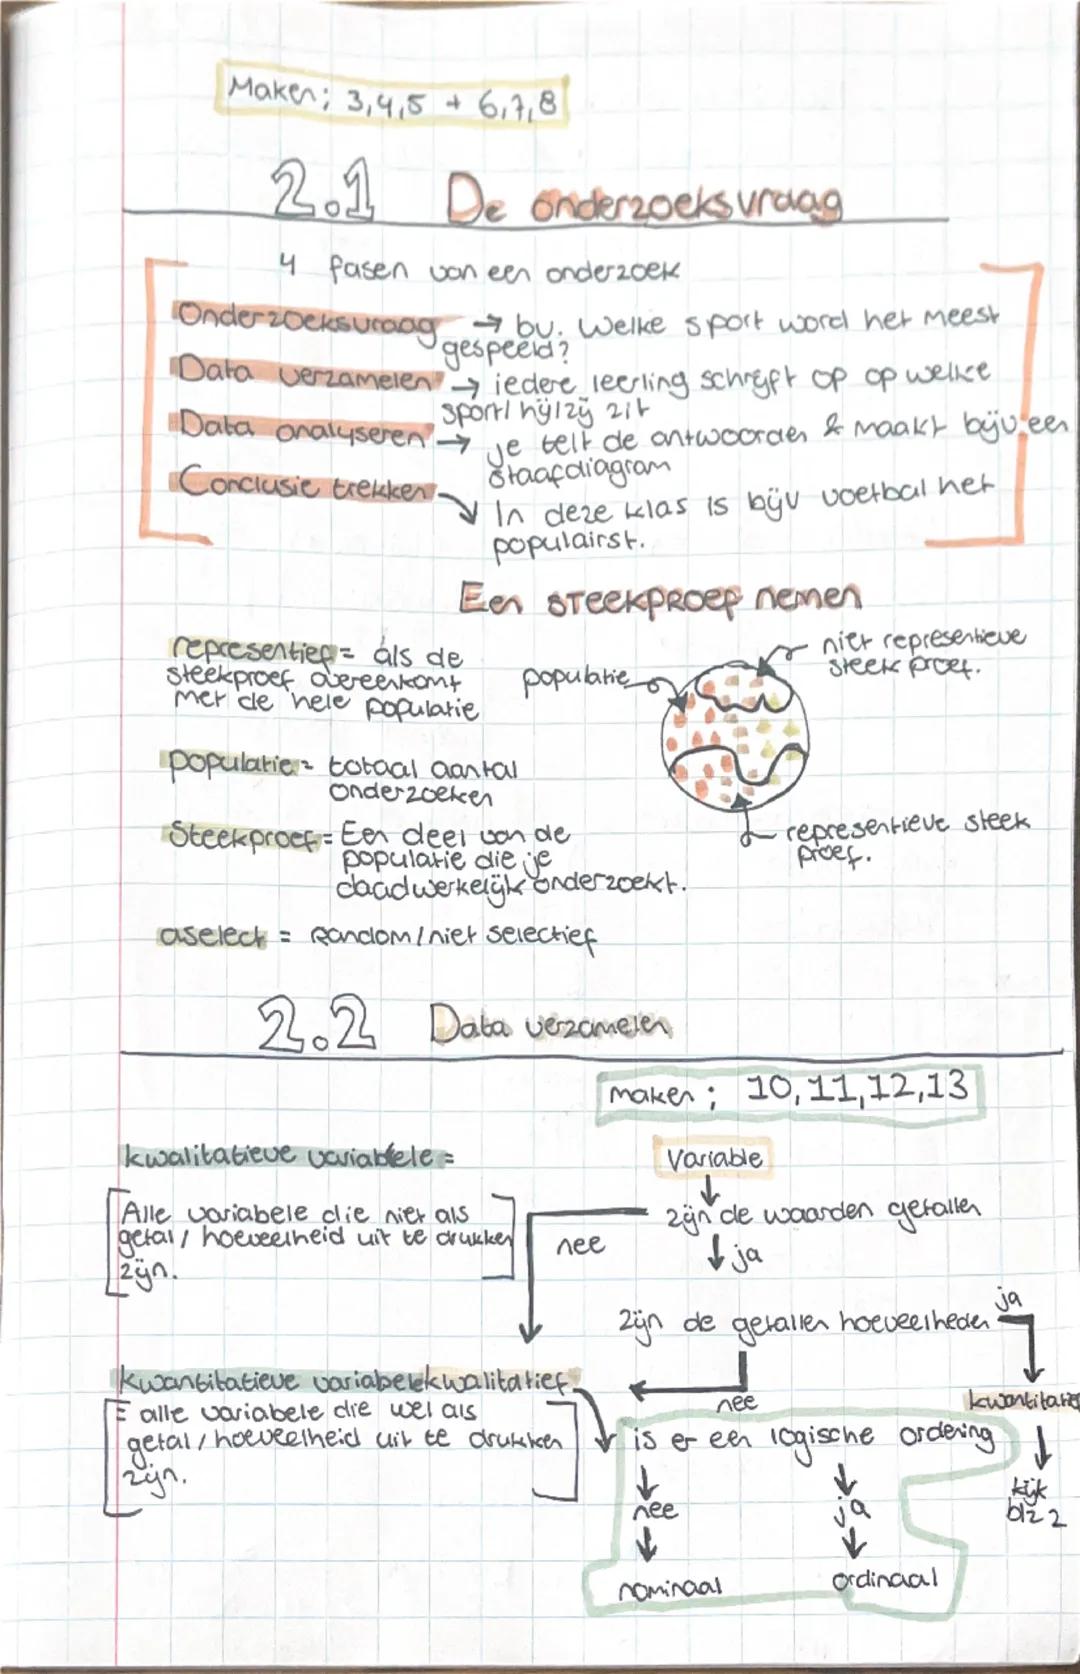 Maken; 3,4,5 + 6,7,8
2.1 De onderzoeksvraag
4 fasen van een onderzoek
Onderzoeksvraag → bv. Welke sport word het meest
gespeeld?
Data verzamelen → iedere leerling schrijft op op welke
sport hij/zij zit
Data analyseren → je telt de antwoorden & maakt bijv een
staafdiagram
Conclusie trekken ↘ In deze klas is bijv voetbal het
populairst.
Een STEEKPROEF nemen
representief = als de
steekproef overeenkomt
met de hele populatie
populatie
niet represenieve
steek proef.
populatie = totaal aantal
onderzoeken
Steekproef = Een deel van de
populatie die je
daadwerkelijk onderzoekt.
representieve steek
proef.
aselect = Random/niet selectief
2.2 Data verzamelen
maken; 10,11,12,13
kwalitatieve variabele =
Alle variabele die niet als
getal/hoeveelheid uit te drukken
zijn.
Variable
↓
zijn de waarden getallen
nee
↓ ja
zijn de getallen hoeveelheden
ja
nee
kwantitatieve variabele
= alle variabele die wel als
getal/hoeveelheid uit te drukken
zijn.
kwalitatief
kwantitatief
is er een logische ordering
↓ ↓ ↓
nee ja kijk
blz 2
↓ ↓
nominaal ordinaal